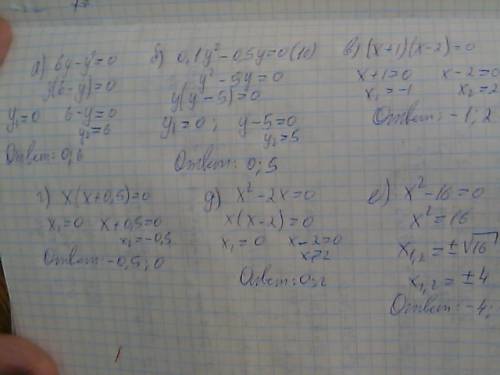 а) 6y-y²=0
y(6-y)=0
y₁=0 6-y=0
y₂=6
Ответ: 0; 6
б) 0,1y²-0,5y=0 (10)
y²-5y=0
y(y-5)=0
y₁=0; y-5=0
y₂=5
Ответ: 0; 5
в) (x+1)(x-2)=0
x+1=0 x-2=0
x₁=-1 x₂=2
Ответ: -1; 2
г) x(x+0,5)=0
x₁=0 x+0,5=0
x₂=-0,5
Ответ: -0,5; 0
д) x²-2x=0
x(x-2)=0
x₁=0 x-2=0
x=2
Ответ: 0; 2
е) x²-16=0
x²=16
x₁,₂=±√16
x₁,₂=±4
Ответ: -4;